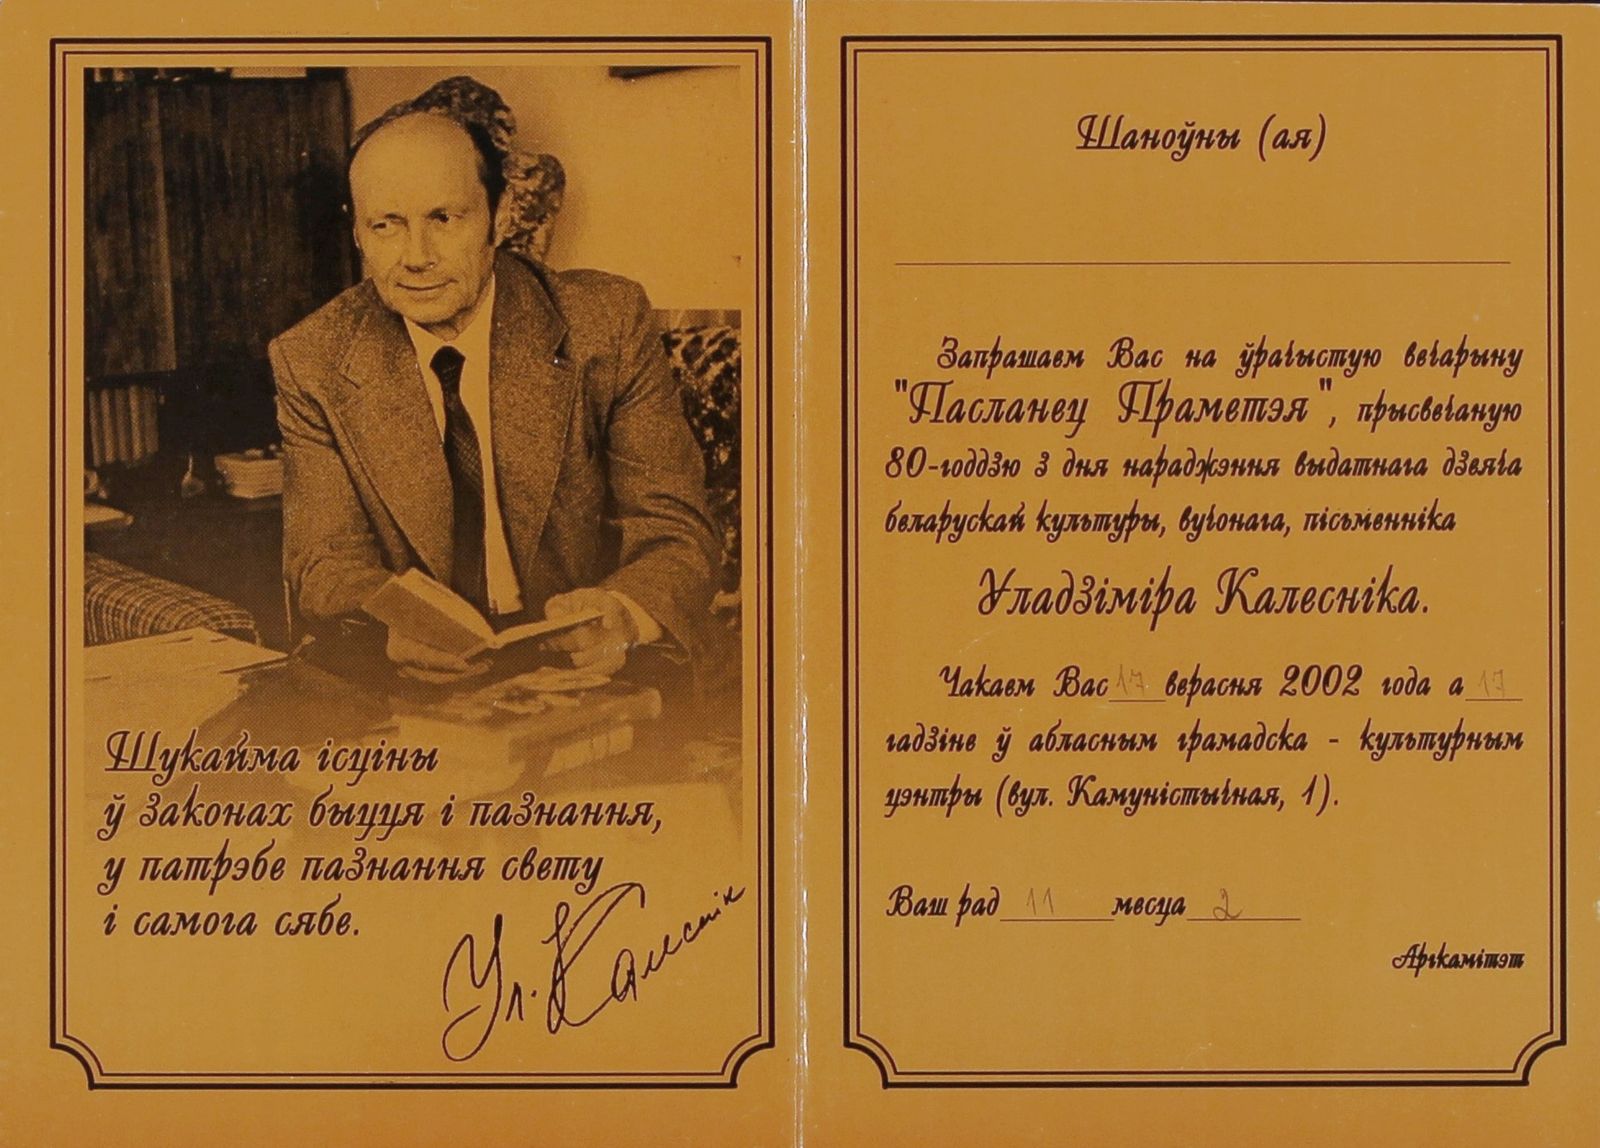 Шукайма ісціны
ў законах быцця і пазнання,
у патрэбе пазнання свету
і самога сябе.
Ул. Калеснік
Шаноўны (ая)
Запрашаем Вас на ўрачыстую вечарыну
"Пасланец Праметэя", прысвечаную
80-годдзю з дня нараджэння выдатнага дзеяча
беларускай культуры, вучонага, пісьменніка
Уладзіміра Калесніка.
Чакаем Вас 17 верасня 2002 года а 17
гадзіне ў абласным грамадска - культурным
цэнтры (вул. Камуністычная, 1).
Ваш рад 11 месца 2
Аргкамітэт